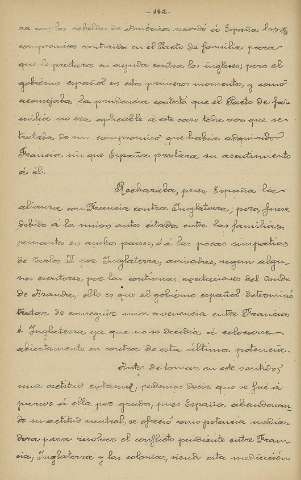 -162-
ra con los rebeldes de América recordó a España los
compromisos contraidos en el Pacto de familia para
que le prestara su ayuda contra los ingleses; pero el
gobierno español en estos primeros momentos, y como
aconsejaba la prudencia contestó que el Pacto de fa-
milia no era aplicable a este caso toda vez que se
trataba de un compromiso que había adquirido
Francia, sin que España prestara su asentimiento
á él.
Rechazada, pues, España la
alianza con Francia contra Inglaterra; pero, fuese
debido á la union antes citada entre las familias
reinante en ambos paises, ó á las pocas simpatias
de Carlos III por Inglaterra, ó según algu-
nos escritores, por las continuas del Conde
de Aranda, ello es que el gobierno español determinó
tratar de conseguir una avenencia entre Francia
é Inglaterra, ya que no se decidia á colocarse
abiertamente en contra de esta última potencia.
Antes de tomar en este sentido
una actitud podemos decir que se fué á
parar á ella por grados, pues España abandonan-
do su actitud neutral, se ofreció como potencia media-
dora para resolver el conflicto pendiente entre Fran-
cia, Inglaterra y las colonias, siendo esta mediación